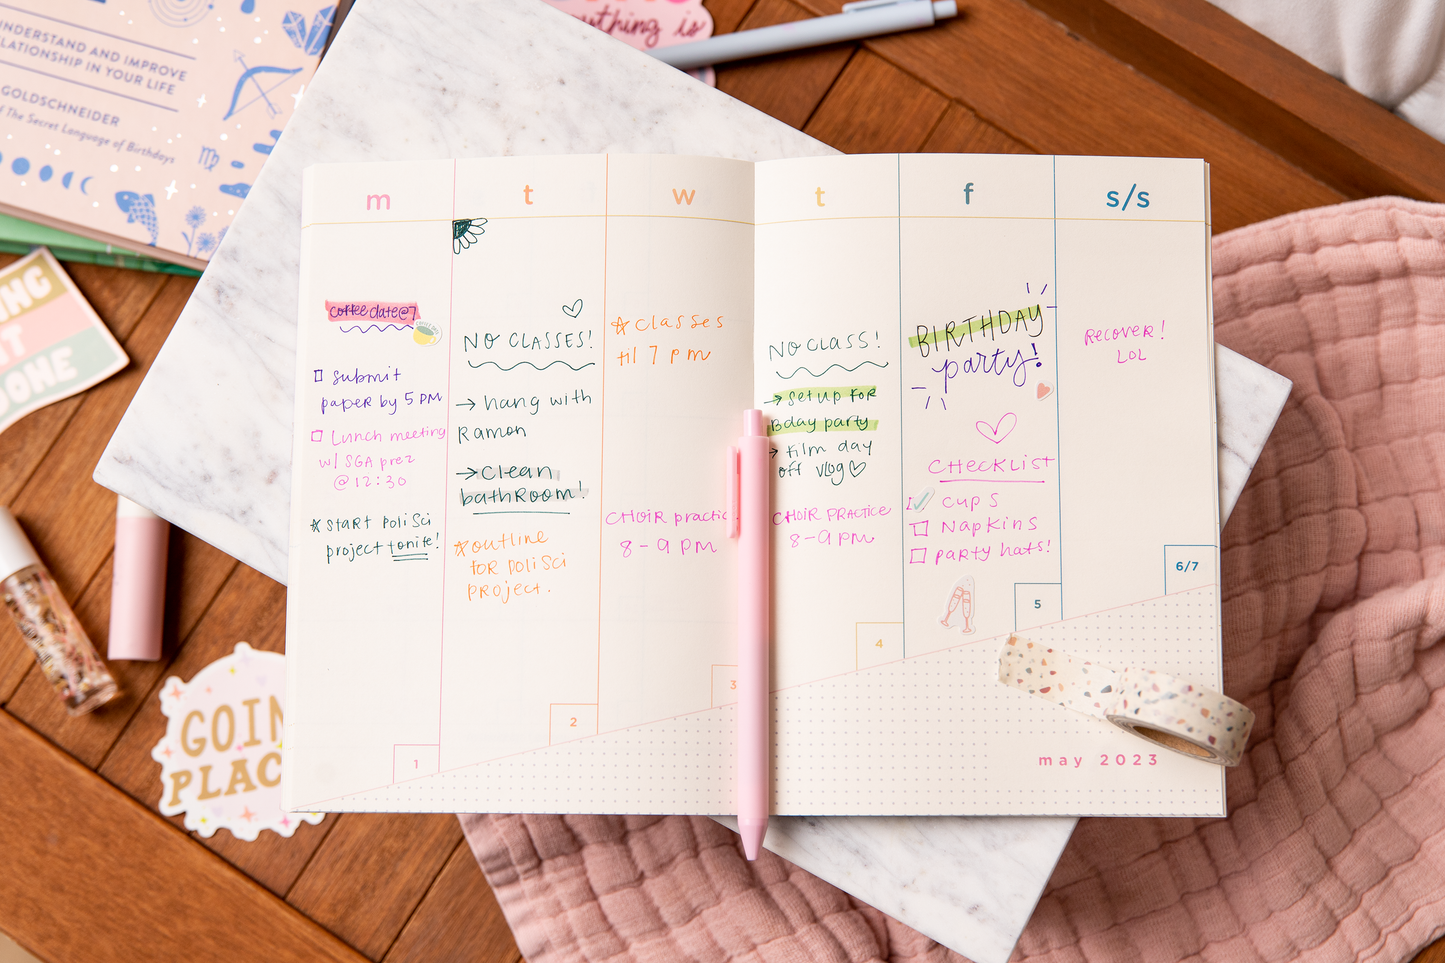 NDERSTAND AND IMPROVE
ELATIONSHIP IN YOUR LIFE
GOLDSCHNEIDER
of The Secret Language of Birthdays
everything is
m
coffee date@7
submit
paper by 5 PM
Lunch meeting
w/ SGA prez
@ 12:30
start poli sci
project tonite!
1
t
NO CLASSES!
→ hang with
Ramon
→ Clean
bathroom!
outline
for poli sci
project.
2
w
classes
til 7 pm
CHOIR practic
8-9 PM
3
t
NO CLASS!
→ set up for
Bday party
→ film day
off vlog
CHOIR PRACTICE
8-9 PM
4
f
BIRTHDAY
party!
CHECKLIST
cups
Napkins
party hats!
5
s/s
RECOVER!
LOL
6/7
may 2023
GOIN
PLAC